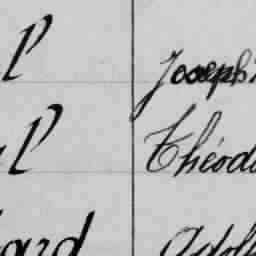 l Joseph
l Théod
ard Adol